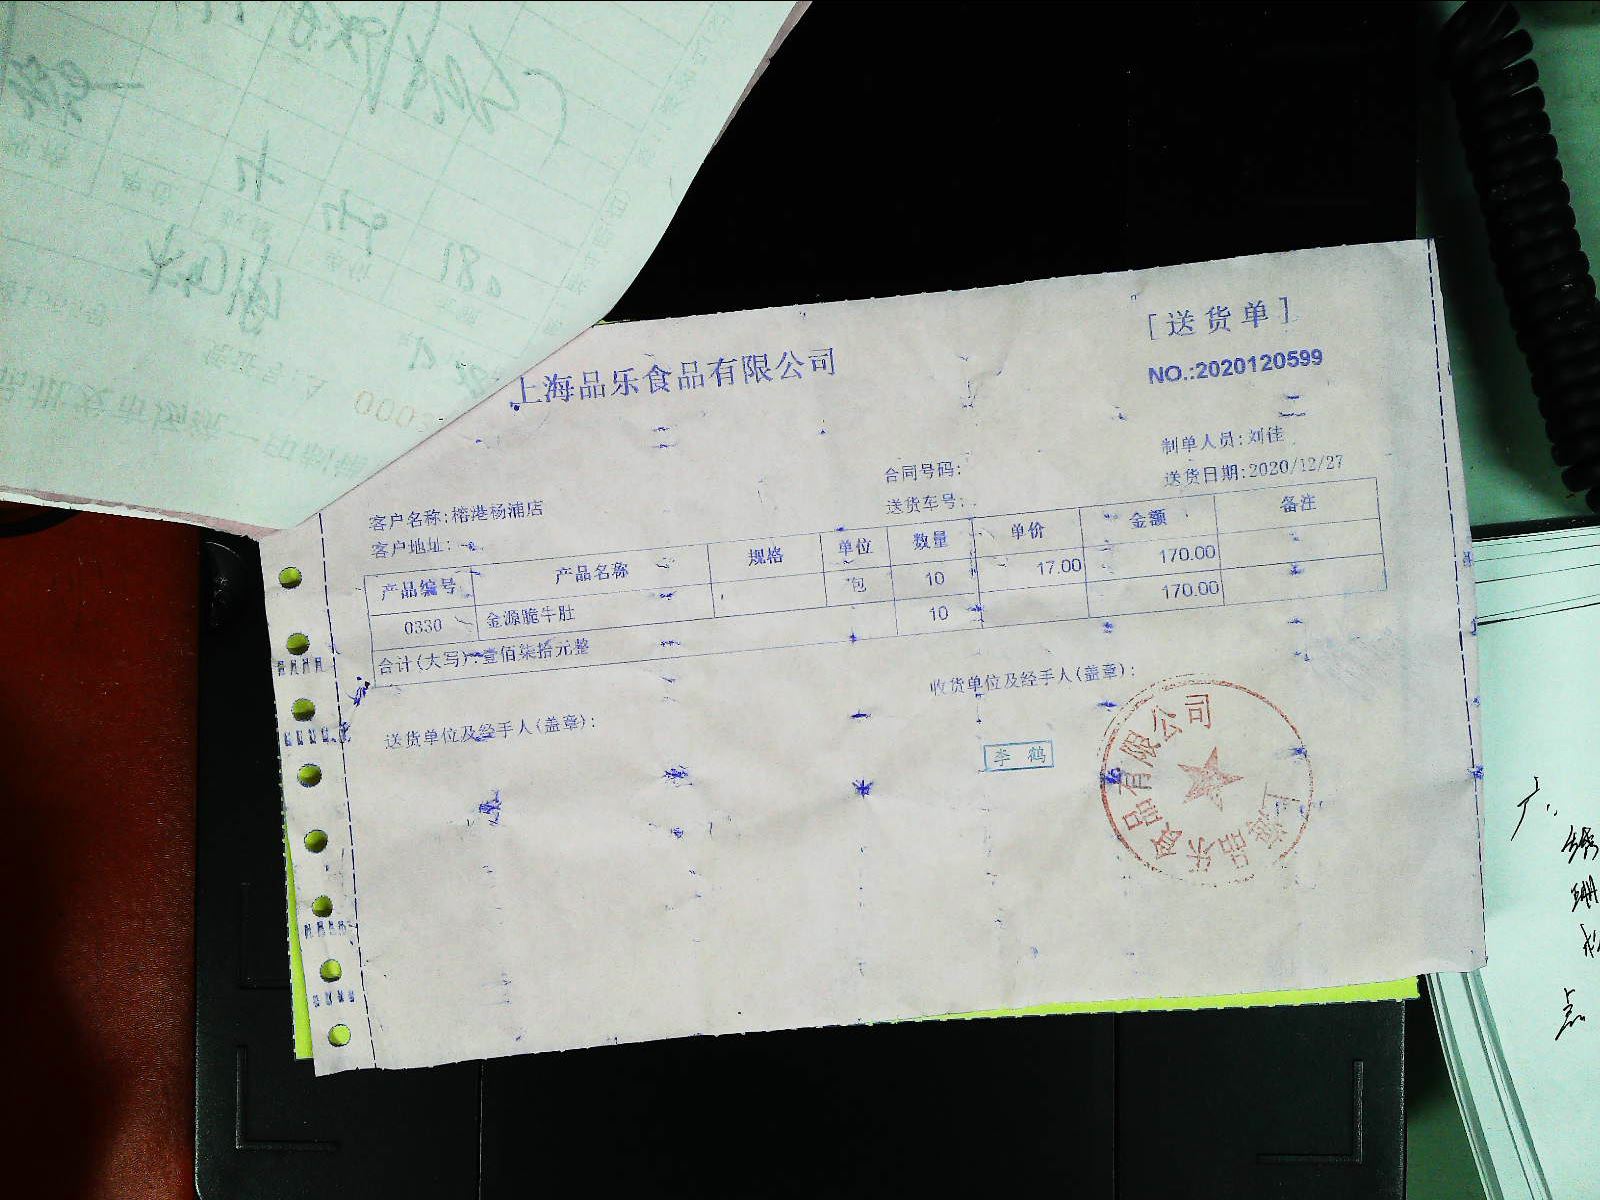 [送货单]
上海品乐食品有限公司
NO.:2020120599
制单人员:刘佳
合同号码:
送货日期:2020/12/27
客户名称:榕港杨浦店
送货车号:
客户地址:
产品编号 产品名称 规格 单位 数量 单价 金额 备注
0330 金源脆牛肚 包 10 17.00 170.00
合计(大写):壹佰柒拾元整 10 170.00
送货单位及经手人(盖章): 收货单位及经手人(盖章):
李鹤
上海品乐食品有限公司
点